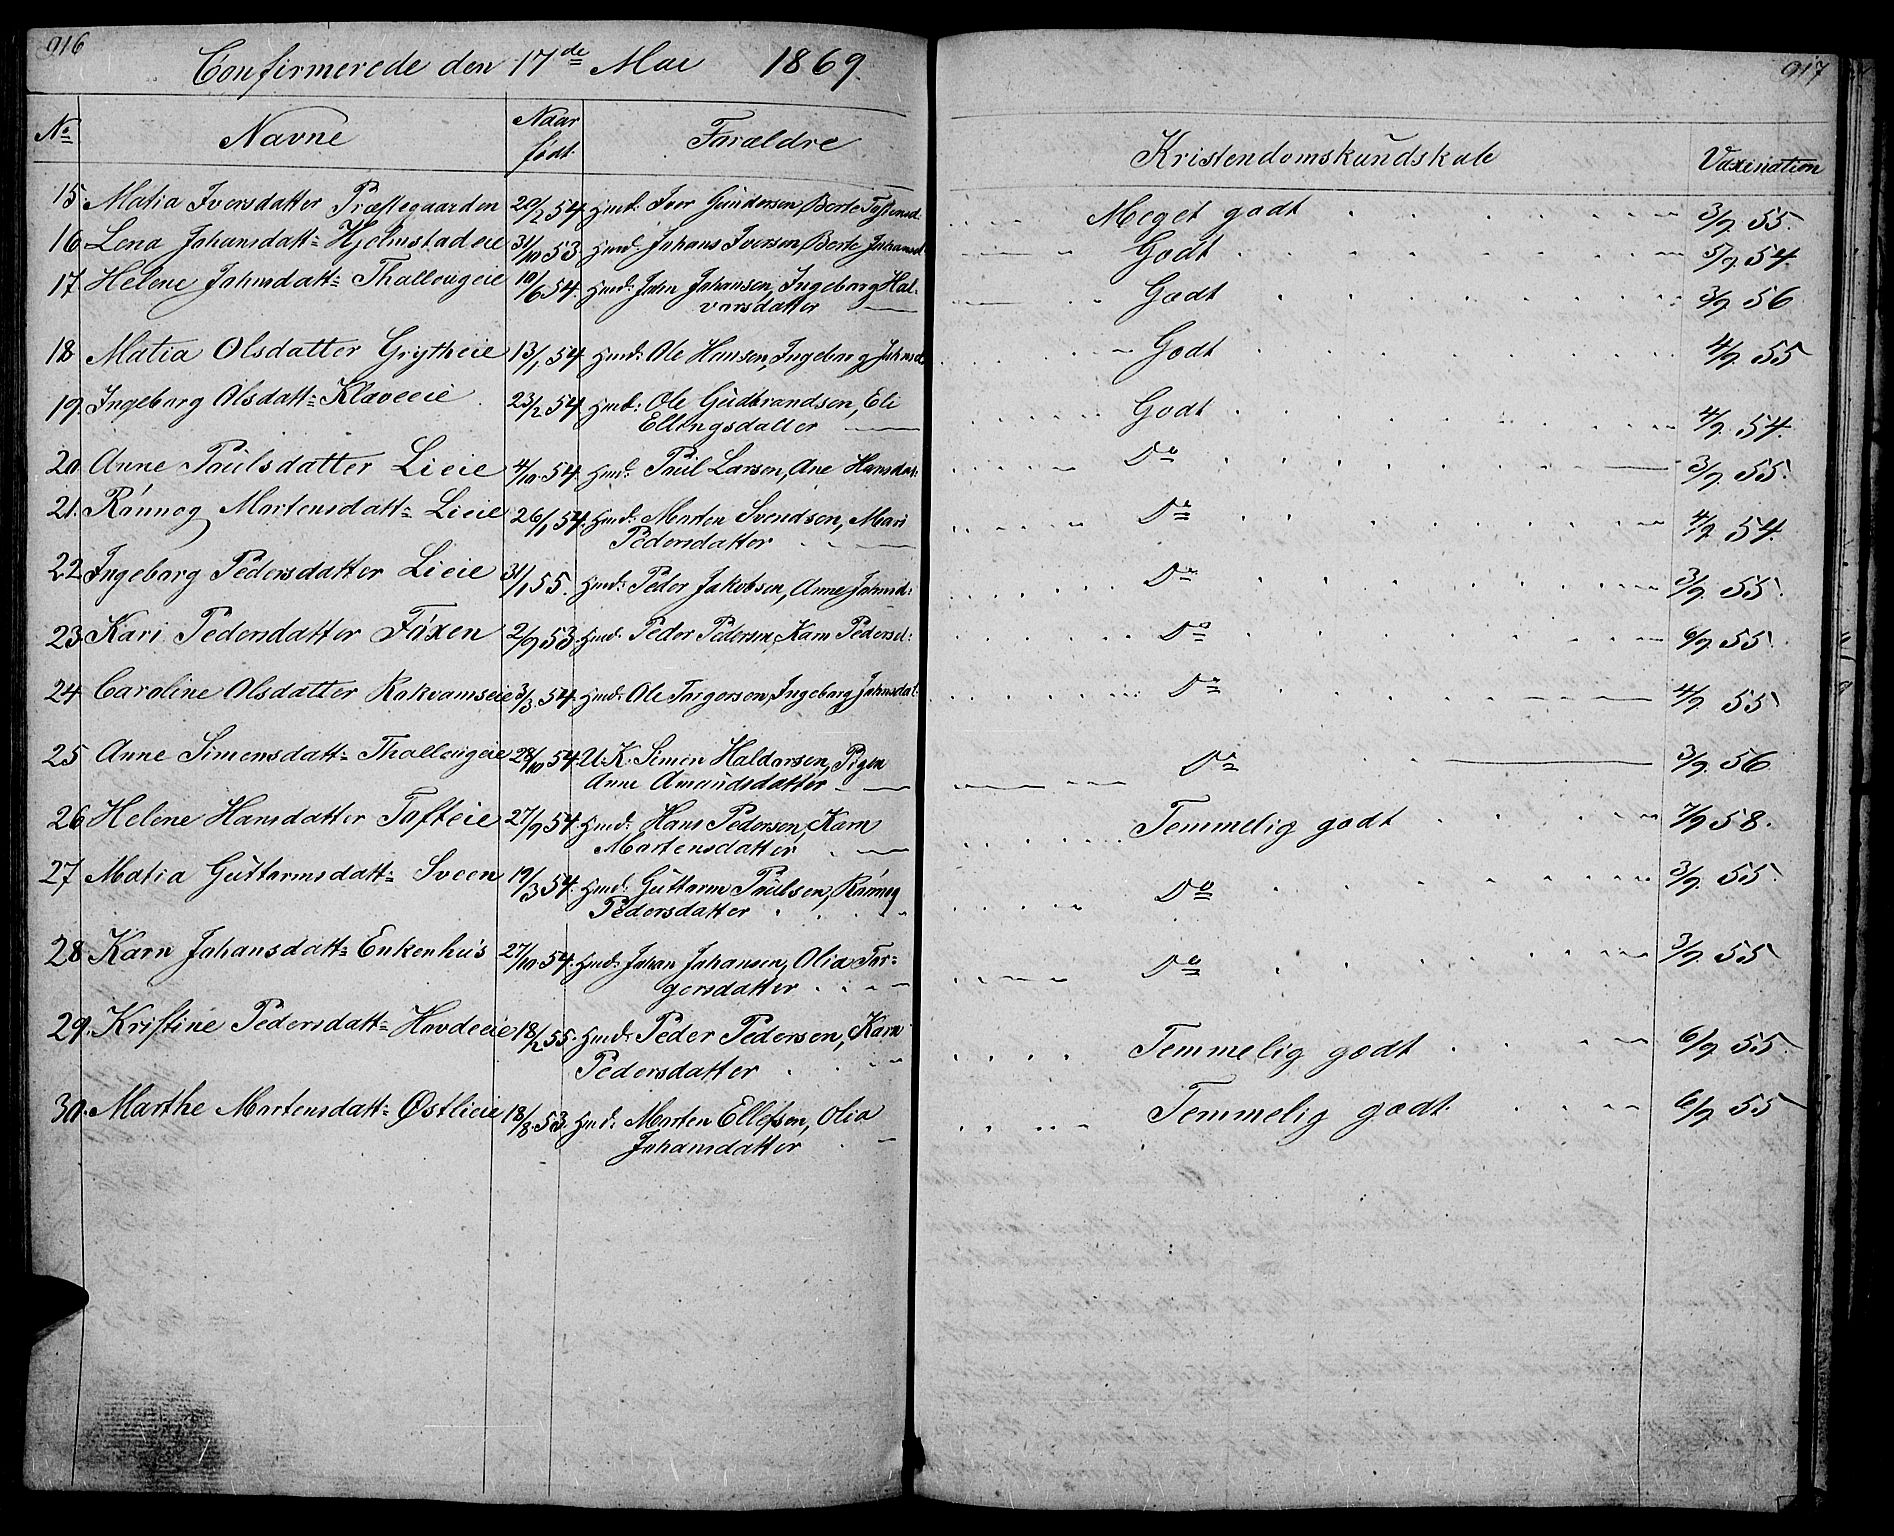 916
Confirmerede den 17de Mai 1869.
No Navne Naar født. Forældre
15. Matia Iversdatter Præstegaarden 20/2 54. Hmd: Iver Gundersen, Berte Toftensd.
16. Lena Johansdatt= Hjelmstadeie 31/10 53. Hmd: Johans Iversen, Berte Johansd
17. Helene Johnsdatt= Thallougeie 10/6 54. Hmd: John Johansen, Ingeborg Hal-
vorsdatter
18 Matia Olsdatter Grytheie 13/1 54. Hmd: Ole Hansen, Ingeborg Johnsd
19. Ingeborg Olsdatt= Klaveeie 23/2 54. Hmd: Ole Gudbrandsen, Eli
Ellingsdatter
20 Anne Poulsdatter Lieie 4/10 54. Hmd: Poul Larsen, Ane Hansdat:
21. Rönnog Martensdatt= Lieie 26/1 54. Hmd: Morten Svendsen, Mari
Pedersdatter
22 Ingeborg Pedersdatter Lieie 31/1 55. Hmd: Peder Jakobsen, Anne Johnsd:
23 Kari Pedersdatter Föxen 2/9 53. Hmd: Peder Pedersen, Karn Pedersd:
24 Caroline Olsdatter Kokvamseie 3/3 54. Hmd: Ole Torgersen, Ingeborg Johnsdat.
25 Anne Simensdatt= Thallougeie 28/10 54. U.K. Simen Haldorsen, Pigen
Anne Amundsdatter
26 Helene Hansdatter Tofteie 27/9 54. Hmd: Hans Pedersen, Karn
Martensdatter
27 Matia Guttormsdatt= Sveen 19/3 54. Hmd: Guttorm Poulsen, Rönnog
Pedersdatter
28 Karn Johansdatt= Enkenhus 27/10 54. Hmd: Johan Johansen, Olia Tor=
gersdatter
29. Kristine Pedersdatt= Hovdeeie 18/2 55. Hmd: Peder Pedersen, Karn
Pedersdatter
30. Marthe Martensdatt= Østlieie 18/8 53. Hmd: Morten Ellefsen, Olia
Johansdatter
917
Kristendomskundskab Vaxination
Meget godt 3/9 55.
Godt 5/9 54.
Godt 3/9 56
Godt 4/9 55
Godt 4/9 54.
Do 3/9 55.
Do 4/9 54.
Do 3/9 55.
Do 6/9 55.
Do 4/9 55
Do 3/9 56.
Temmelig godt 7/9 58.
Do 3/9 55.
Do 3/9 55
Temmelig godt 6/9 55.
Temmelig godt. 6/9 55